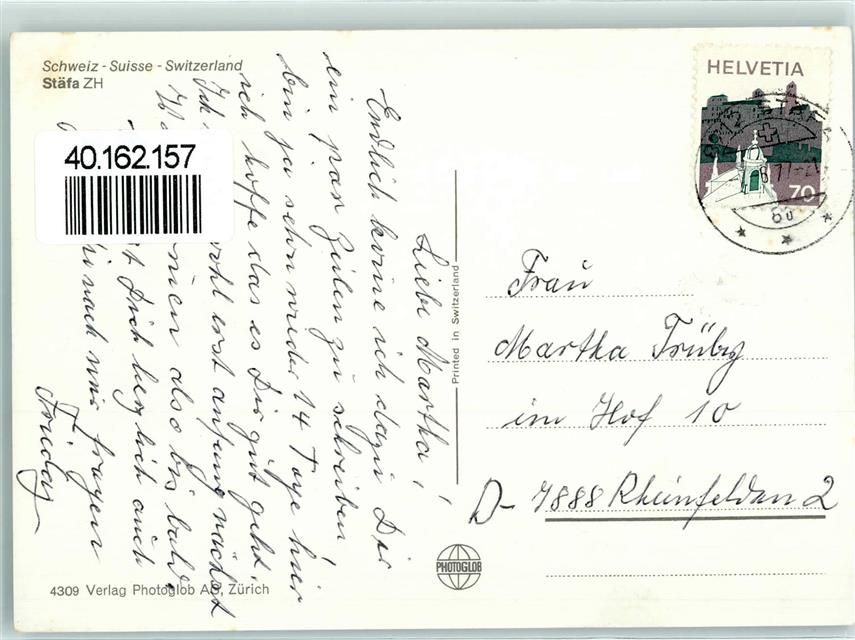 Schweiz - Suisse - Switzerland
Stäfa ZH
40.162.157
HELVETIA
70
Liebe Martha!
Endlich komme ich dazu Dir
ein paar Zeilen zu schreiben,
bin ja schon wieder 14 Tage hier
ich hoffe das es Dir gut geht.
Ich wohl erst anfang nächst
also bis bald,
Dich herzlich auch
nach mir fragen
Frieda
Printed in Switzerland
Frau
Martha Trüby
im Hof 10
D- 7888 Rheinfelden 2
PHOTOGLOB
4309 Verlag Photoglob AG, Zürich